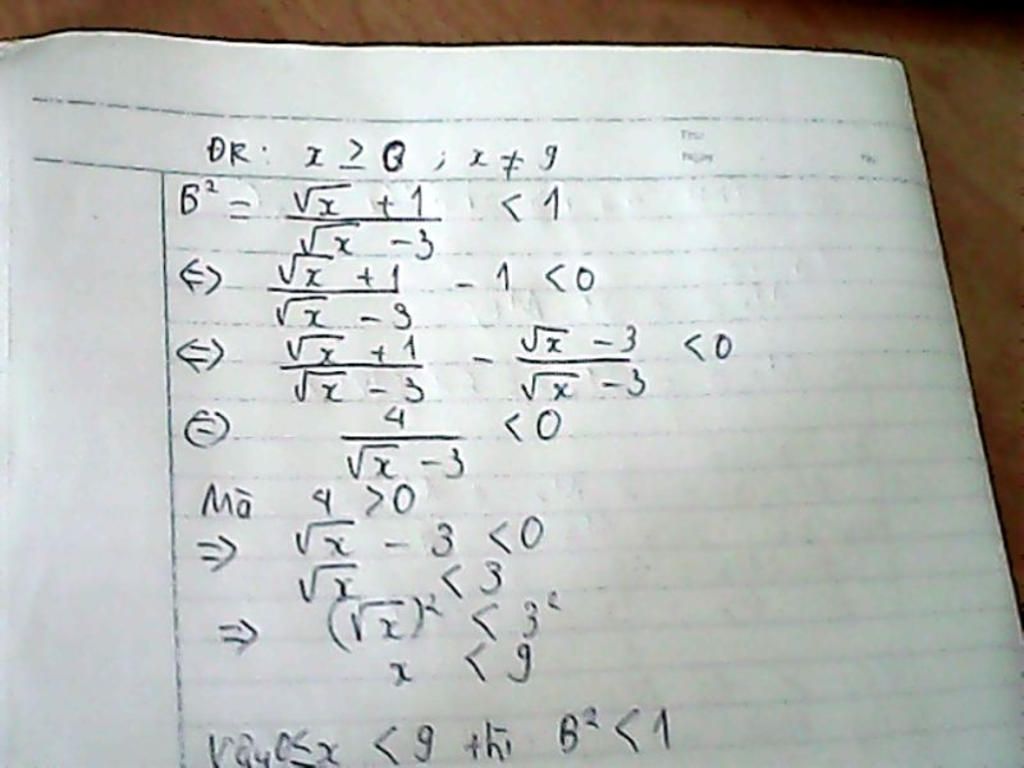 ĐK: x ≥ 0 ; x ≠ 9
B² = (√x + 1)/(√x - 3) < 1
<=> (√x + 1)/(√x - 3) - 1 < 0
<=> (√x + 1)/(√x - 3) - (√x - 3)/(√x - 3) < 0
<=> 4/(√x - 3) < 0
Mà 4 > 0
=> √x - 3 < 0
√x < 3
=> (√x)² < 3²
x < 9
Vậy 0 ≤ x < 9 thì B² < 1